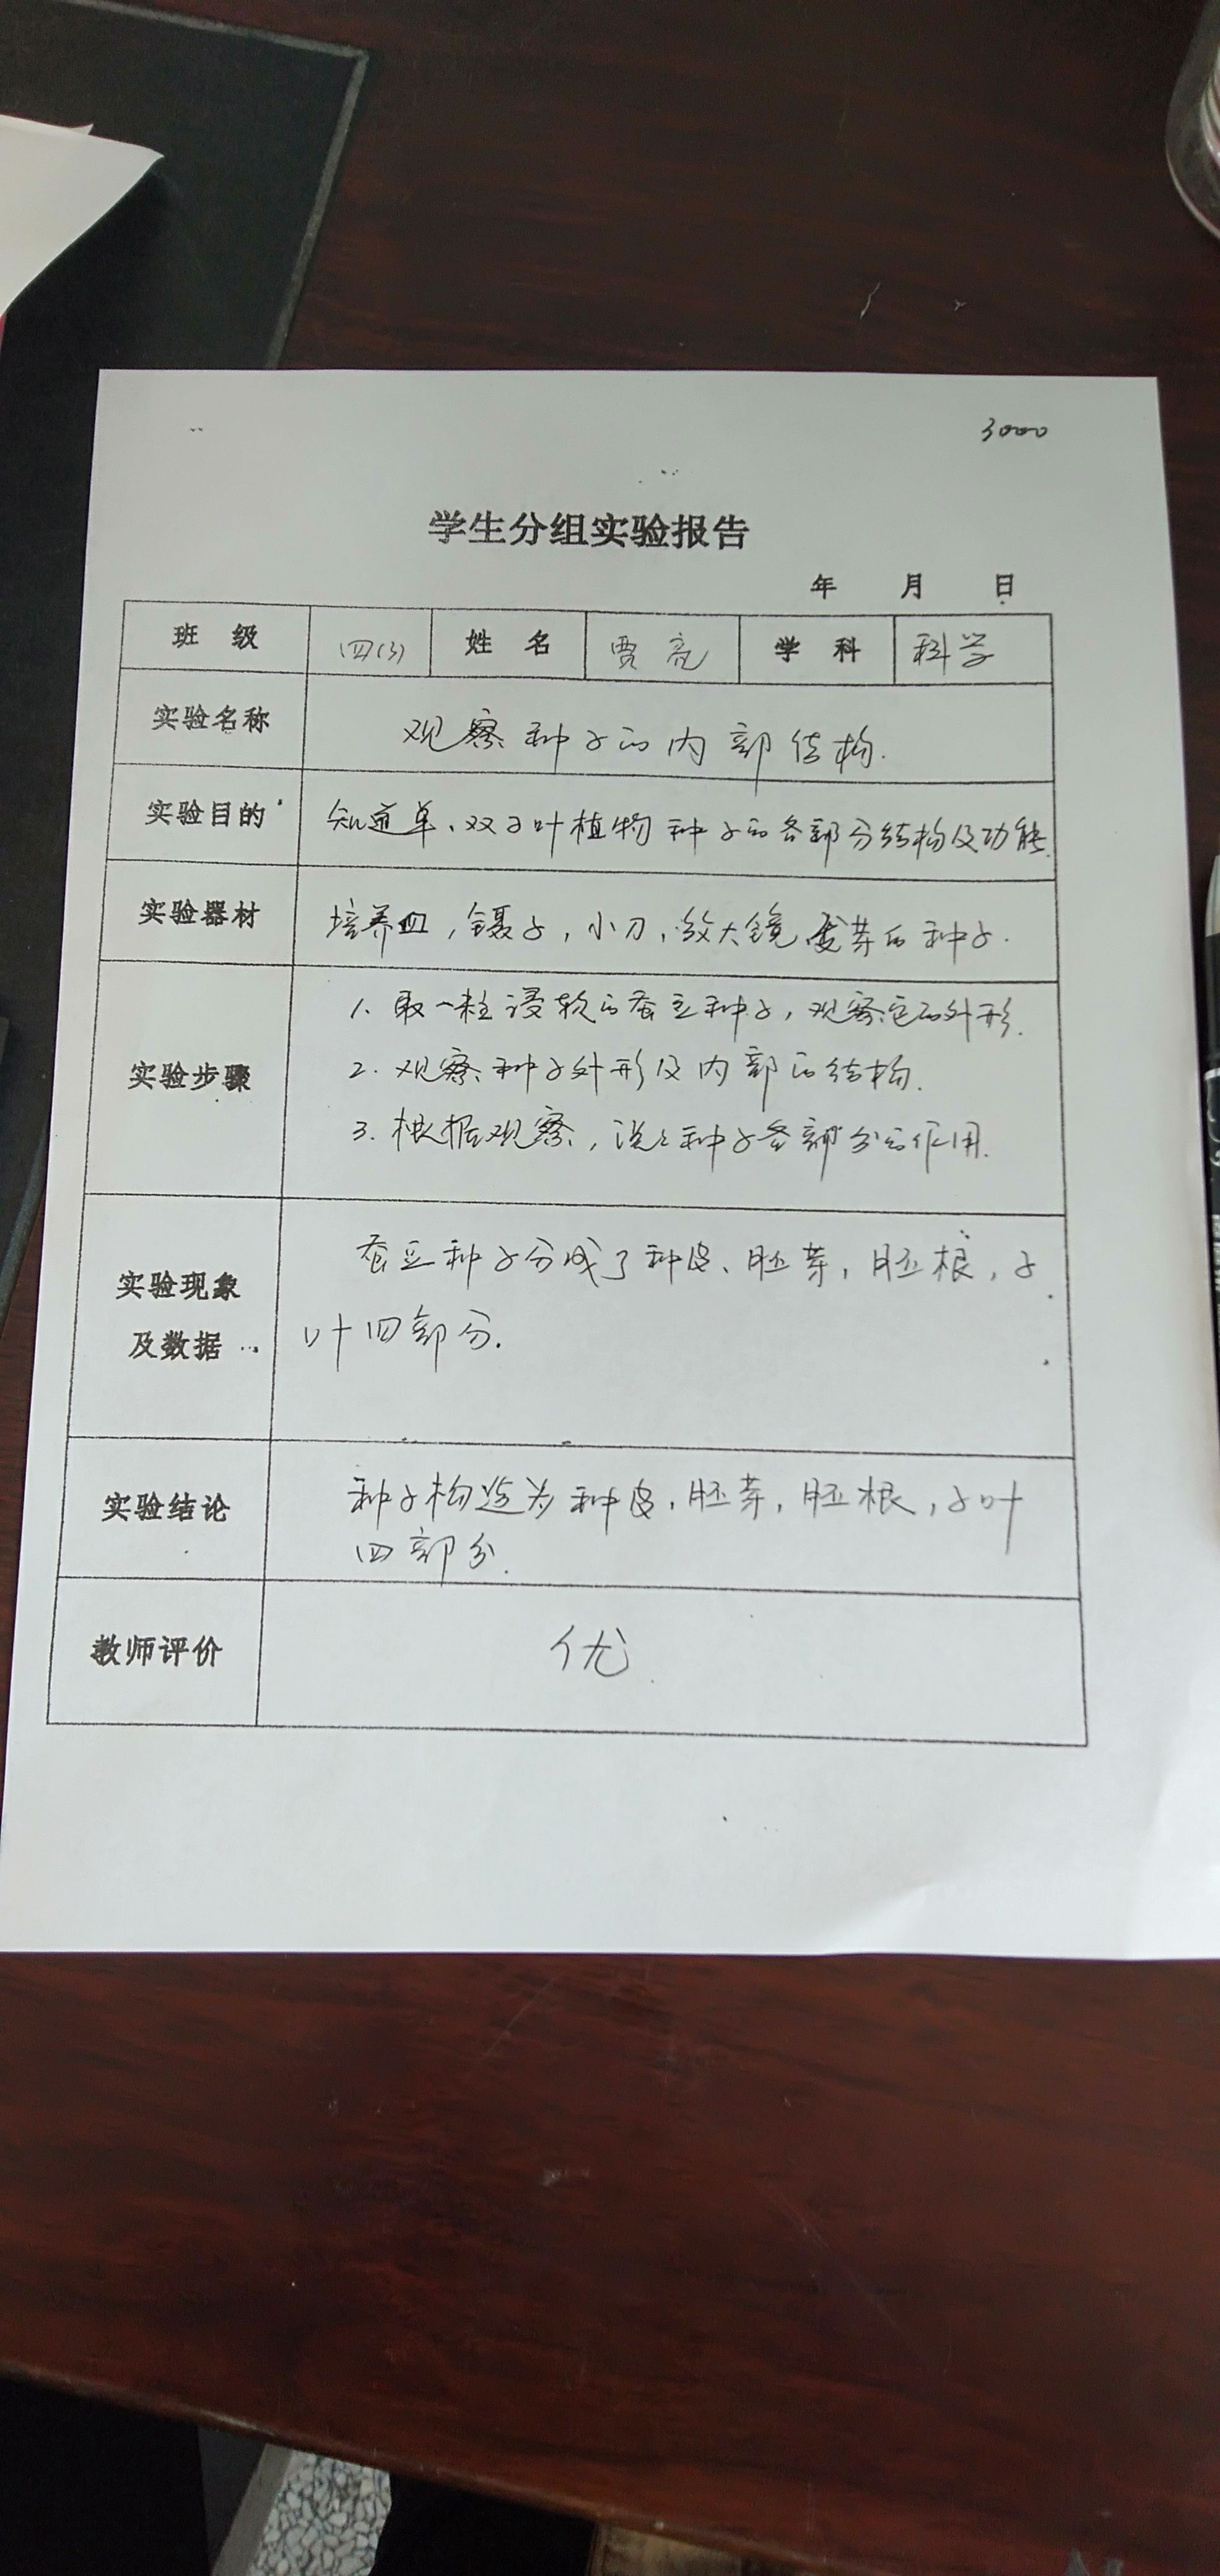 3000
学生分组实验报告
年 月 日
班 级 四(3) 姓 名 贾亮 学 科 科学
实验名称 观察种子的内部结构.
实验目的 知道单、双子叶植物种子的各部分结构及功能.
实验器材 培养皿,镊子,小刀,放大镜 发芽的种子.
1. 取一粒浸软的蚕豆种子,观察它的外形.
实验步骤 2. 观察种子外形及内部的结构.
3. 根据观察,说说种子各部分的作用.
实验现象 蚕豆种子分成了种皮、胚芽,胚根,子
及数据 叶四部分.
实验结论 种子构造为种皮,胚芽,胚根,子叶
四部分.
教师评价 优